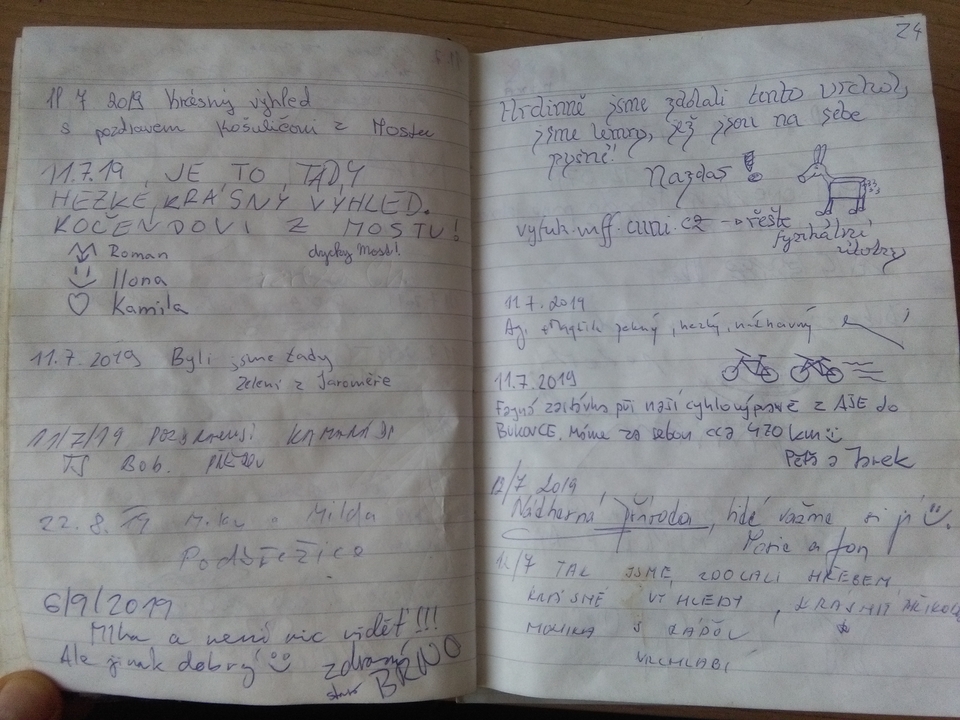 11.7 2019 Krásný výhled
s pozdravem Košuličovi z Mostu
11.7.19, JE TO TADY
HEZKÉ, KRÁSNÝ VÝHLED.
KOČENDOVI Z MOSTU!
Roman
Ilona
Kamila
11.7.2019 Byli jsme tady
Zelení z Jaroměře
11/7/19
TJ Bob.
22.8. 19 Milda
Podbřežice
6/9/2019
Mlha a není nic vidět!!!
Ale jinak dobrý
zdraví
BRNO
24
Hrdinně jsme zdolali tento vrchol,
jsme lemry, jež jsou na sebe
pyšné!
Nazdar!
vyfuk.mff.cuni.cz → řešte
fyzikální
11.7.2019
pěkný, hezký, nádherný
11.7.2019
zastávka při naší cyklovýpravě z AŠE do
BUKOVCE. Máme za sebou cca 470 km
Péťa a Jarek
12/7 2019
Nádherná příroda, lidé važme si jí
Marie a Jan
12/7 TAK JSME ZDOLALI HŘEBEN
KRÁSNÉ VÝHLEDY,
MONIKA S
VRCHLABÍ